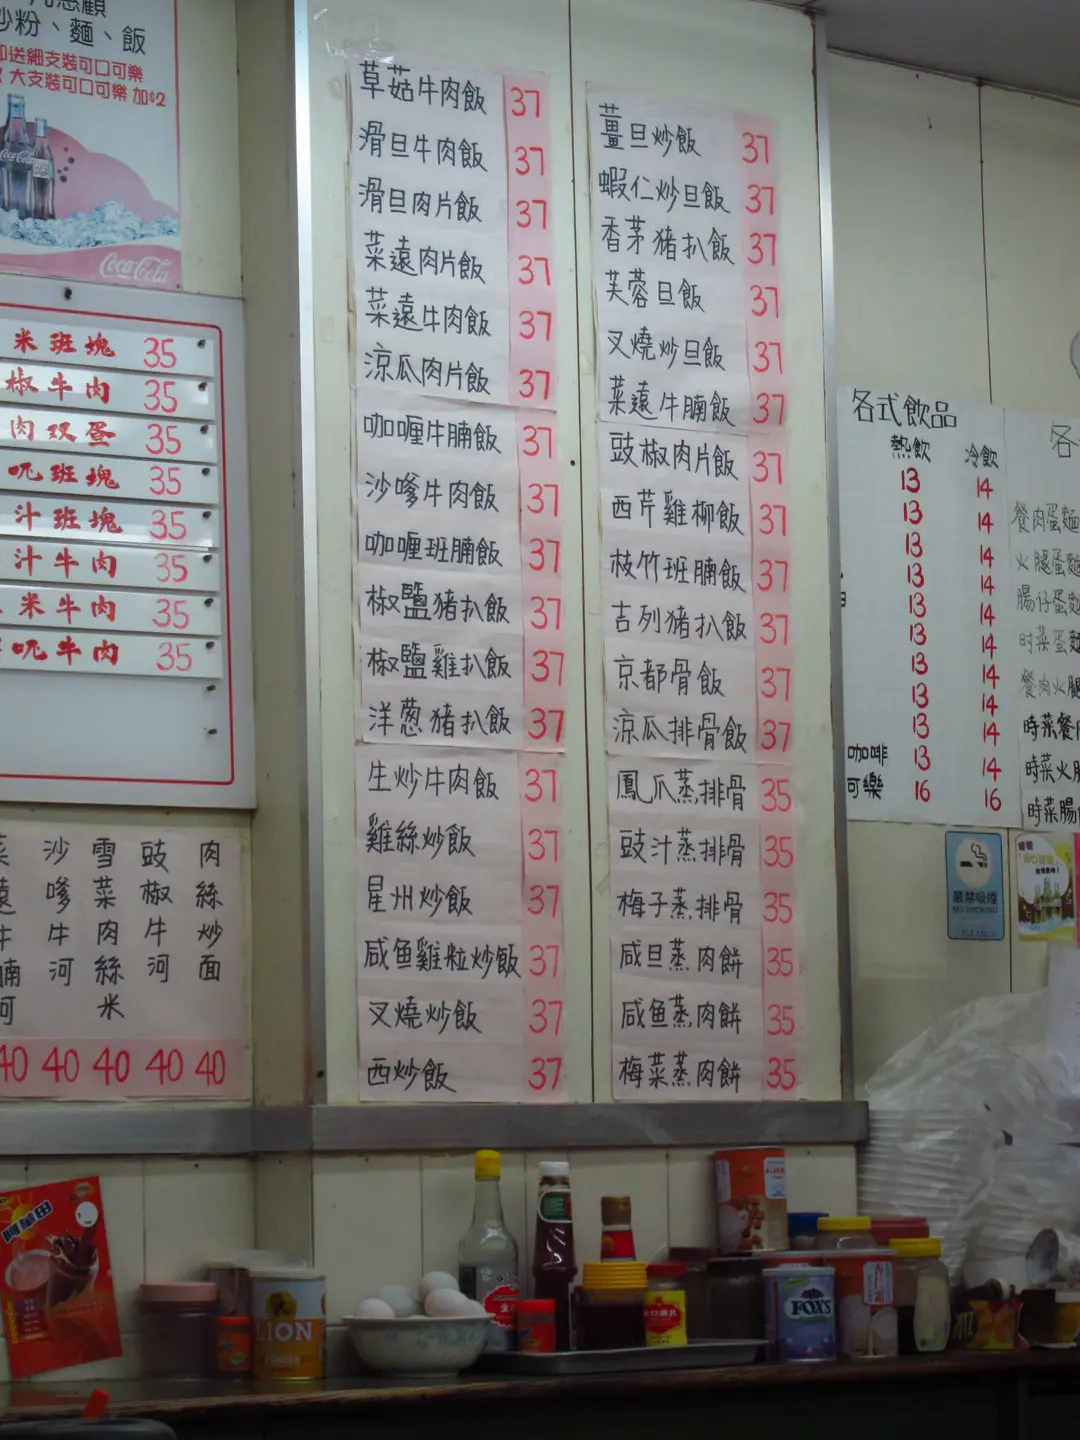 炒粉、麵、飯
即送細支裝可口可樂
大支裝可口可樂 加$2
Coca-Cola
米班塊 35
椒牛肉 35
肉双蛋 35
呎班塊 35
汁班塊 35
汁牛肉 35
米牛肉 35
呎牛肉 35
菜遠牛腩河 40
沙嗲牛河 40
雪菜肉絲米 40
豉椒牛河 40
肉絲炒面 40
草菇牛肉飯 37
滑旦牛肉飯 37
滑旦肉片飯 37
菜遠肉片飯 37
菜遠牛肉飯 37
涼瓜肉片飯 37
咖喱牛腩飯 37
沙嗲牛肉飯 37
咖喱班腩飯 37
椒鹽豬扒飯 37
椒鹽雞扒飯 37
洋葱豬扒飯 37
生炒牛肉飯 37
雞絲炒飯 37
星州炒飯 37
咸鱼雞粒炒飯 37
叉燒炒飯 37
西炒飯 37
薑旦炒飯 37
蝦仁炒旦飯 37
香茅豬扒飯 37
芙蓉旦飯 37
叉燒炒旦飯 37
菜遠牛腩飯 37
豉椒肉片飯 37
西芹雞柳飯 37
枝竹班腩飯 37
吉列豬扒飯 37
京都骨飯 37
涼瓜排骨飯 37
鳳爪蒸排骨 35
豉汁蒸排骨 35
梅子蒸排骨 35
咸旦蒸肉餅 35
咸鱼蒸肉餅 35
梅菜蒸肉餅 35
各式飲品
熱飲 冷飲
13 14
13 14
13 14
13 14
13 14
13 14
13 14
13 14
13 14
咖啡 13 14
可樂 16 16
各
餐肉蛋麵
火腿蛋麵
腸仔蛋麵
时菜蛋麵
餐肉火腿
時菜餐肉
時菜火腿
時菜腸
嚴禁吸煙
NO SMOKING
阿華田
LION
POWDER
FOX'S